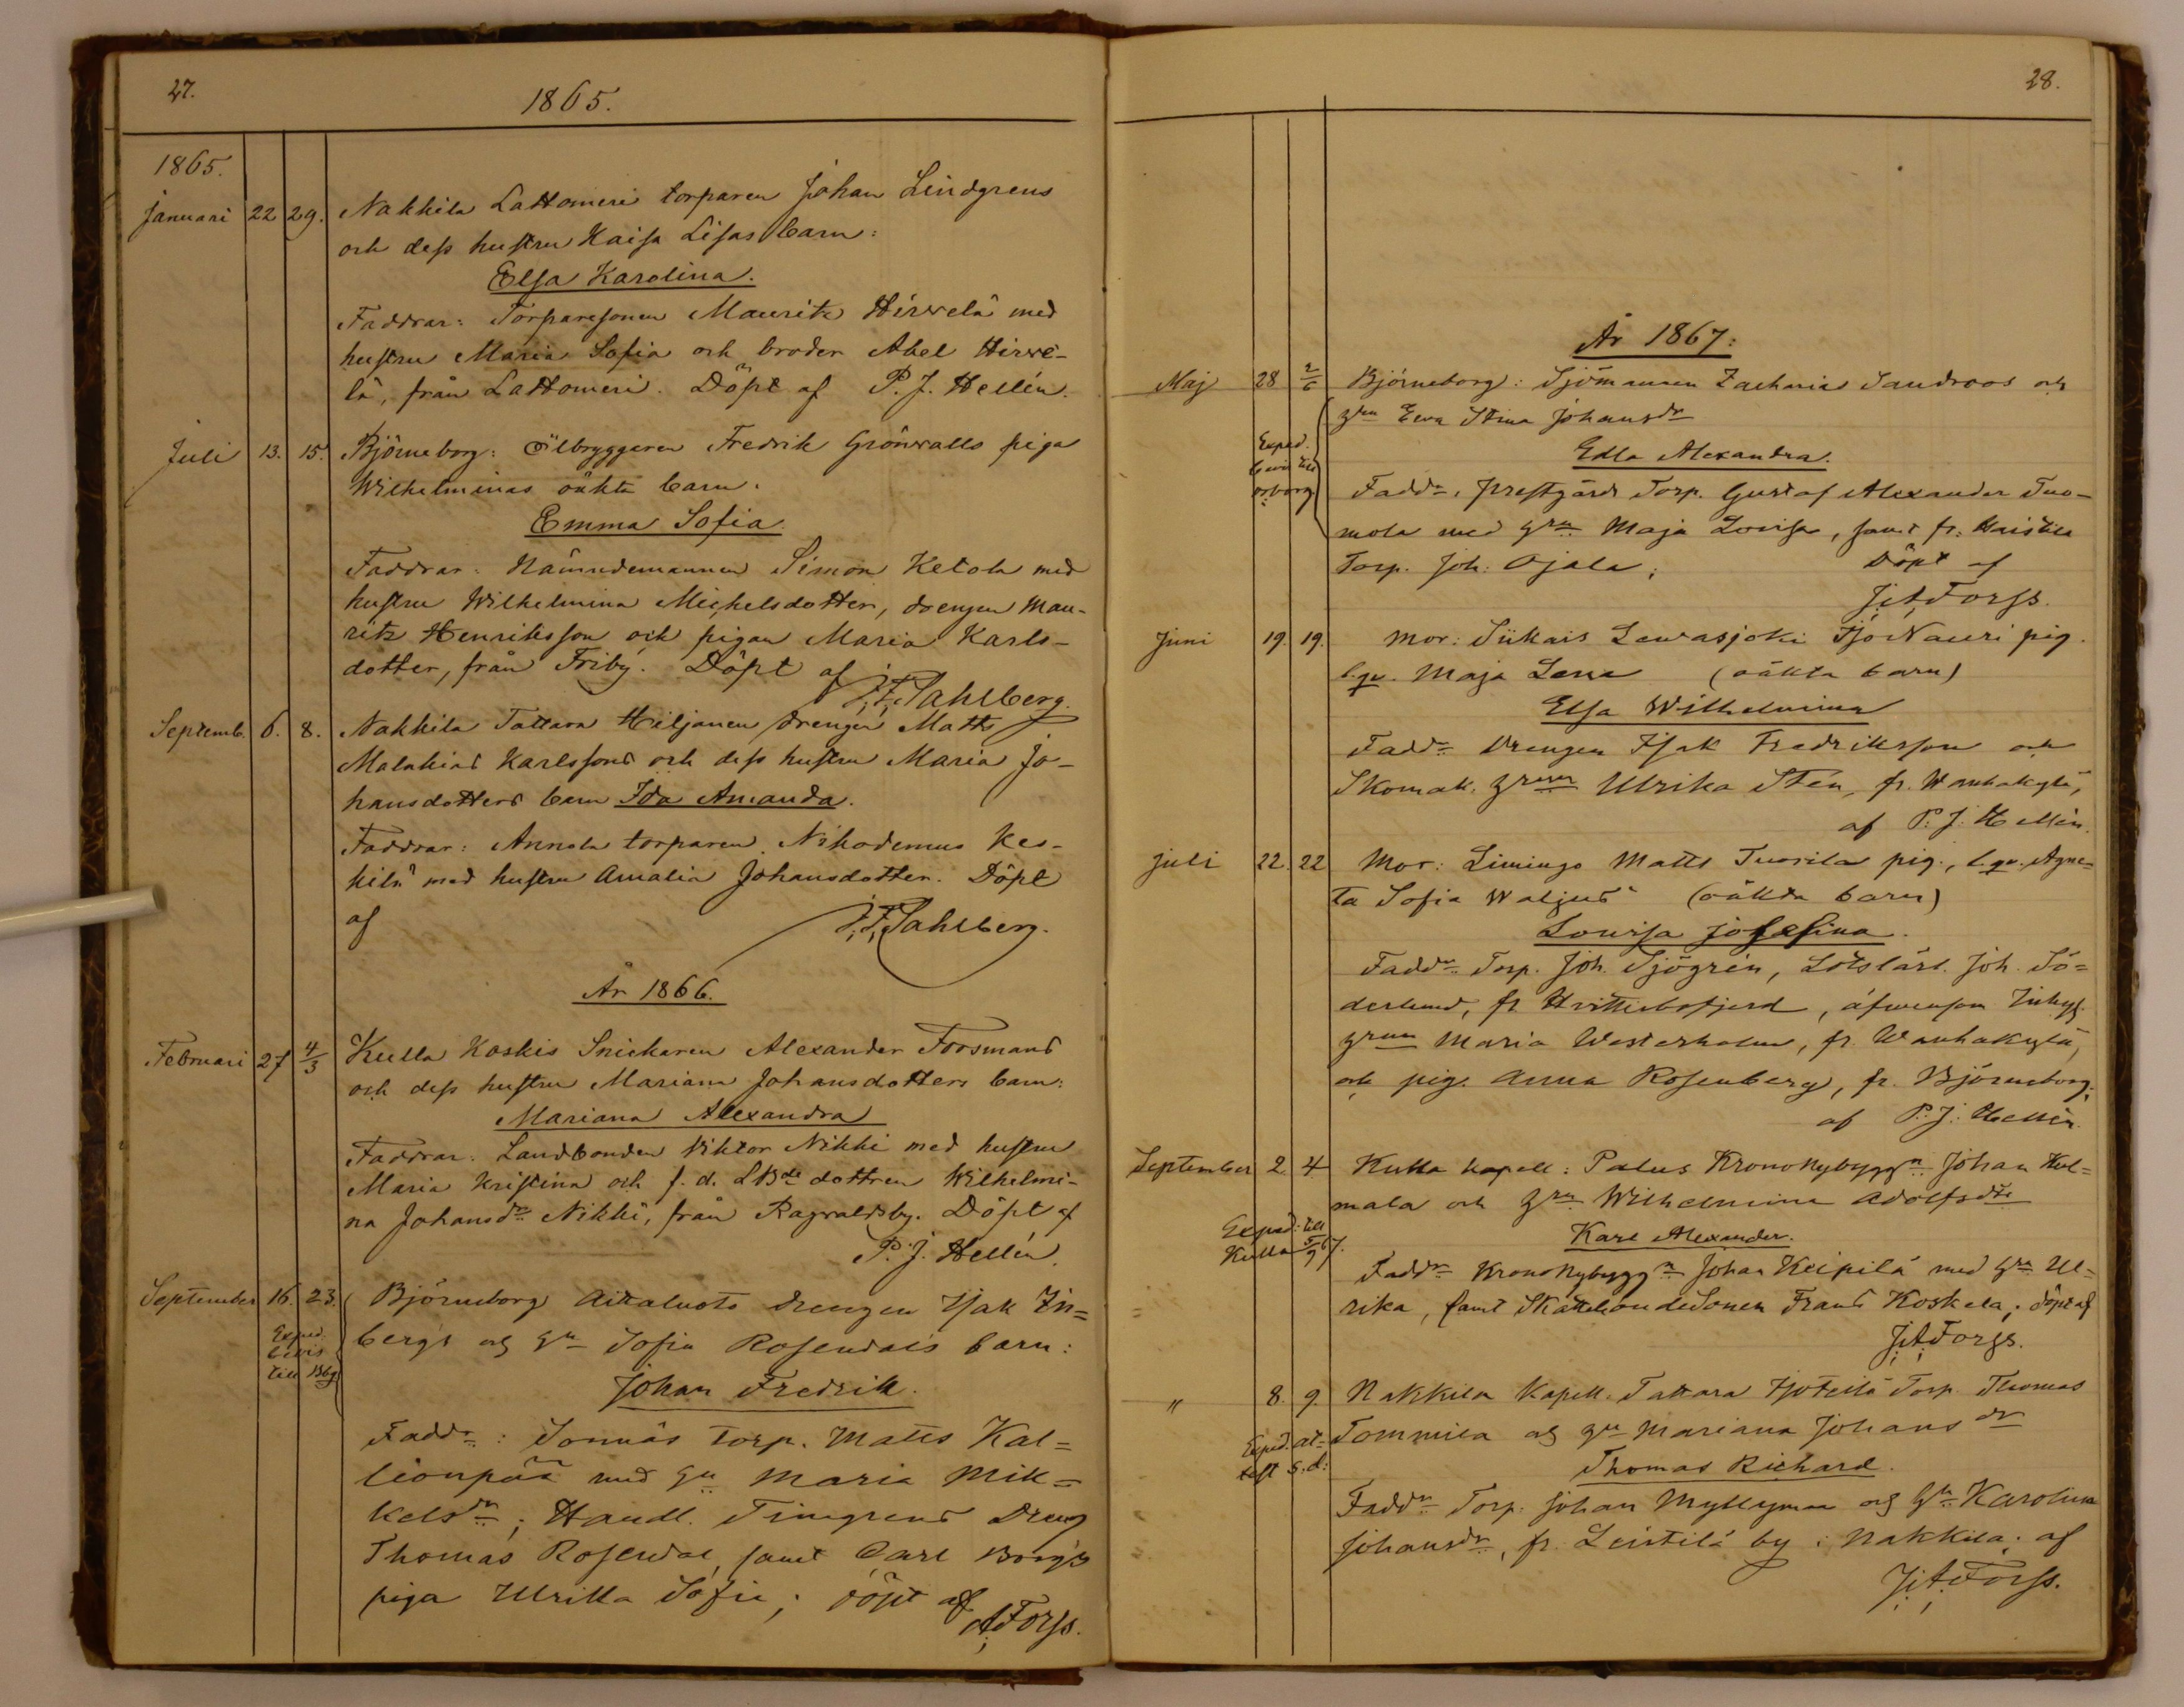 27.
1865.
1865.
Januari 22 29. Nakkila Lattomeri torparen Johan Lindgrens
och dess hustru Kaisa Lisas barn:
Elsa Karolina.
Faddrar: Torparesonen Maurits Hirvelä med
hustru Maria Sofia och broder Abel Hirve-
lä, från Lattomeri. Döpt af P. J. Hellén.
Juli 13. 15. Björneborg: Ölbryggaren Fredrik Grönvalls piga
Wilhelminas oäkta barn.
Emma Sofia.
Faddrar: Nämndemannen Simon Ketola med
hustru Wilhelmina Michelsdotter, drengen Mau-
ritz Henriksson och pigan Maria Karls-
dotter, från Friby. Döpt af
J. F. Sahlberg.
Septemb. 6. 8. Nakkila Tattara Hiljanen drengen Matts
Malakias Karlssons och dess hustru Maria Jo-
hansdotters barn Ida Amanda.
Faddrar: Annola torparen Nikodemus Kes-
kilä med hustru Amalia Johansdotter. Döpt
af J. F. Sahlberg.
År 1866.
Februari 27 4/3 Kulla Koskis Snickaren Alexander Forsmans
och dess hustru Mariana Johansdotters barn:
Mariana Alexandra
Faddrar: Landbonden Viktor Nikki med hustru
Maria Kristina och f. d. LBde dottren Wilhelmi-
na Johansdr Nikki, från Ragvaldsby. Döpt af
P. J. Hellén.
September 16. 23. Björneborg Aittaluoto drengen Isak In=
bergs och hu Sofia Rosendals barn:
Exped.
bevis
till Bbg
Johan Fredrik.
Faddr: Sonnäs torp. Matts Kal=
lionpää med hu Maria Mik=
kelsdr; Handl. Timgrens dreng
Thomas Rosendal, samt Carl Borgs
piga Ulrika Sofia; döpt af
A Forss.
28.
År 1867:
Maj 28 2/6 Björneborg: Sjömannen Zacharias Sandroos och
hru Ewa Stina Johansdr
Exped.
bevis till
Edla Alexandra.
Faddr, prestgårds Torp. Gustaf Alexander Tuo-
mola med hru Maja Lovisa, samt fr.
Torp. Joh: Ojala; Döpt af
J. A. Forss.
Juni 19. 19. Mor: Siikais Lewasjoki Nauri pig.
l. qv. Maja Lena (oäkta barn)
Elsa Wilhelmina
Faddr Drengen Isak Fredriksson och
Skomak. hrun Ulrika Stén, fr. Wanhakylä,
af P. J. Hellén.
Juli 22. 22 Mor: Limingo Matts Tuorila pig., l. qv. Agne=
ta Sofia Waljus (oäkta barn)
Lovisa Josefina.
Faddr Torp. Joh. Sjögrén, Lotslärl. Joh. Sö=
derlund, fr , äfvensom Inhys.
hrun Maria Westerholm, fr. Wanhakylä,
och pig. Anna Rosenberg, fr. Björneborg;
af P. J. Hellén.
September 2. 4. Kulla kapell: Palus Krononybyggn Johan Hul=
mala och hru Wilhelmina Adolfsdtr
Exped: till
Kulla 5/9 67.
Karl Alexander.
Faddr Krononybyggn Johan Keipilä med hru Ul=
rika, samt Skattebondesonen Frans Koskela; döpt af
J. A. Forss.
" 8. 9. Nakkila Kapell. Tattara Torp. Thomas
Tommila och hu Mariana Johansdr
Exped. at=
test s. d:
Thomas Richard.
Faddr Torp. Johan Myllymaa och hu Karolina
Johansdr, fr. Leistilä by i Nakkila; af
J. A. Forss.